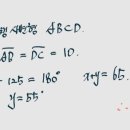 행사변형 ABCD.
AB = DC = 10.
125 = 180° x+y = 65.
y = 55°